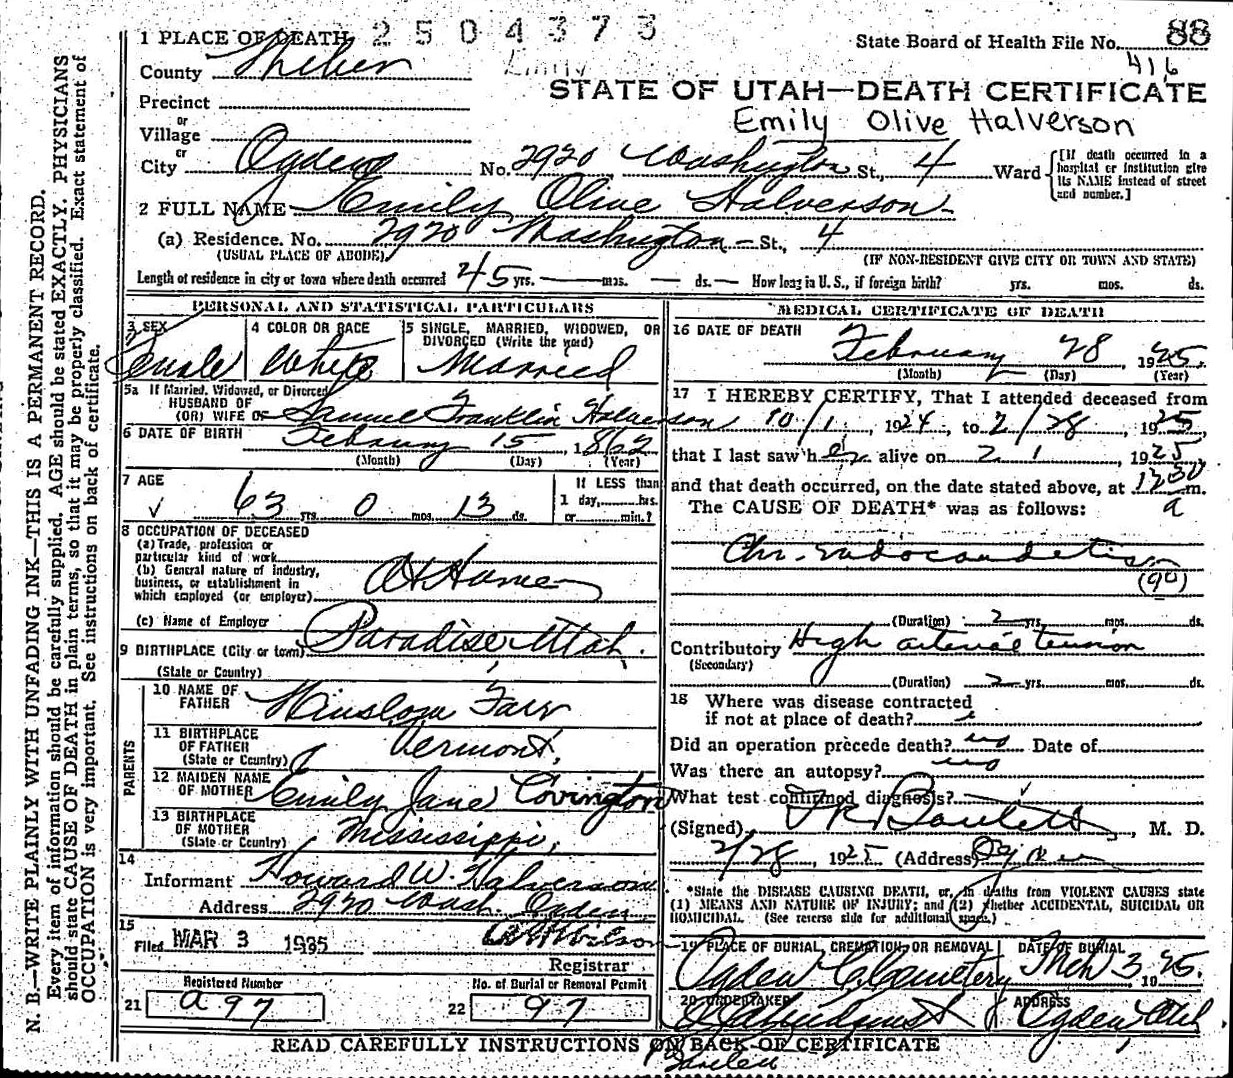 2504373
1 PLACE OF DEATH
State Board of Health File No. 88
416
County Weber
STATE OF UTAH—DEATH CERTIFICATE
Precinct
Emily Olive Halverson
or
Village
or
City Ogden No. 2920 Washington St., 4 Ward
[If death occurred in a hospital or institution give its NAME instead of street and number.]
2 FULL NAME Emily Olive Halverson
(a) Residence. No. 2920 Washington St., 4
(USUAL PLACE OF ABODE) (IF NON-RESIDENT GIVE CITY OR TOWN AND STATE)
Length of residence in city or town where death occurred 45 yrs. — mos. — ds. — How long in U.S., if foreign birth? yrs. mos. ds.
PERSONAL AND STATISTICAL PARTICULARS
3 SEX Female
4 COLOR OR RACE White
5 SINGLE, MARRIED, WIDOWED, OR DIVORCED (Write the word) Married
5a If Married, Widowed, or Divorced
HUSBAND OF
(OR) WIFE OF Samuel Franklin Halverson
6 DATE OF BIRTH February 15, 1862
(Month) (Day) (Year)
7 AGE 63 yrs. 0 mos. 13 ds.
If LESS than
1 day, hrs.
or min.?
8 OCCUPATION OF DECEASED
(a) Trade, profession or
particular kind of work
(b) General nature of industry,
business, or establishment in
which employed (or employer) At Home
(c) Name of Employer
9 BIRTHPLACE (City or town) Paradise Utah.
(State or Country)
PARENTS
10 NAME OF FATHER Winslow Farr
11 BIRTHPLACE OF FATHER Vermont,
(State or Country)
12 MAIDEN NAME OF MOTHER Emily Jane Covington
13 BIRTHPLACE OF MOTHER Mississippi,
(State or Country)
14
Informant Howard W. Halverson
Address 2920 Wash. Ogden
15
Filed MAR 3 1925 Wilson
Registrar
Registered Number
21 a97
No. of Burial or Removal Permit
22 97
MEDICAL CERTIFICATE OF DEATH
16 DATE OF DEATH
February 28 1925.
(Month) (Day) (Year)
17 I HEREBY CERTIFY, That I attended deceased from
10/1, 1924, to 2/28, 1925,
that I last saw her alive on 2 1, 1925,
and that death occurred, on the date stated above, at 1230 a m.
The CAUSE OF DEATH* was as follows:
Chr. endocarditis
(90)
(Duration) 2 yrs. mos. ds.
Contributory High arterial tension
(Secondary)
(Duration) 2 yrs. mos. ds.
18 Where was disease contracted
if not at place of death?
Did an operation precede death? no Date of
Was there an autopsy? no
What test confirmed diagnosis?
(Signed) , M. D.
2/28, 1925 (Address) Ogden
*State the DISEASE CAUSING DEATH, or, in deaths from VIOLENT CAUSES state
(1) MEANS AND NATURE OF INJURY; and (2) whether ACCIDENTAL, SUICIDAL OR
HOMICIDAL. (See reverse side for additional space.)
19 PLACE OF BURIAL, CREMATION, OR REMOVAL Ogden C. Cemetery
DATE OF BURIAL Mch 3 1925.
20 UNDERTAKER
ADDRESS Ogden, Utah
READ CAREFULLY INSTRUCTIONS ON BACK OF CERTIFICATE
N. B.—WRITE PLAINLY WITH UNFADING INK—THIS IS A PERMANENT RECORD.
Every item of information should be carefully supplied. AGE should be stated EXACTLY. PHYSICIANS
should state CAUSE OF DEATH in plain terms, so that it may be properly classified. Exact statement of
OCCUPATION is very important. See instructions on back of certificate.